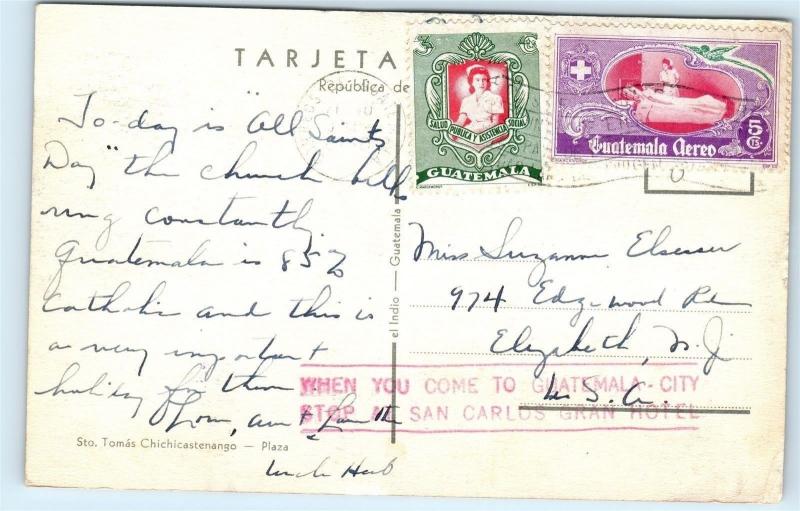 TARJETA
República de
To-day is "All Saints
Day" the church bells
ring constantly
Guatemala is 85%
Catholic and this is
a very important
holiday for them
Love, Aunt
Uncle Herb
Sto. Tomás Chichicastenango — Plaza
el Indio — Guatemala
SALUD PUBLICA Y ASISTENCIA SOCIAL
GUATEMALA
5
CTS.
Guatemala Aereo
Miss Suzanne Elsesser
974 Edgewood Rd
Elizabeth, N.J.
U.S.A.
WHEN YOU COME TO GUATEMALA-CITY
STOP AT SAN CARLOS GRAN HOTEL